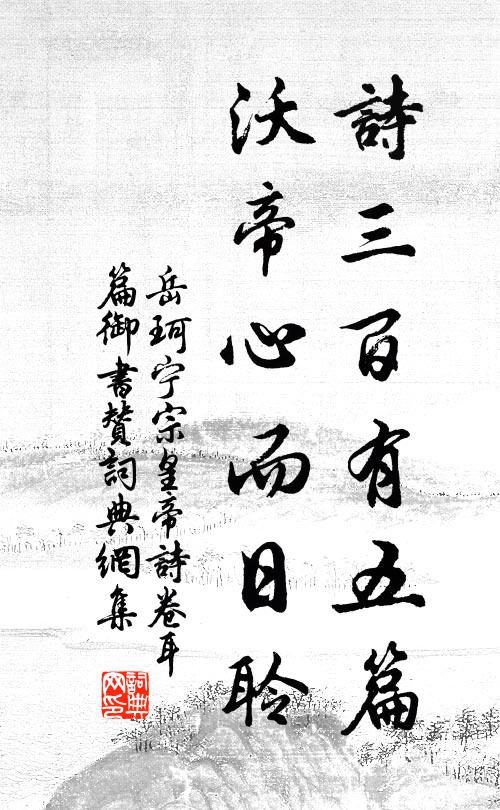 詩三百有五篇
沃帝心而日聆
岳珂宁宗皇帝詩卷耳
篇御書贊詞典網集
詞典
网印